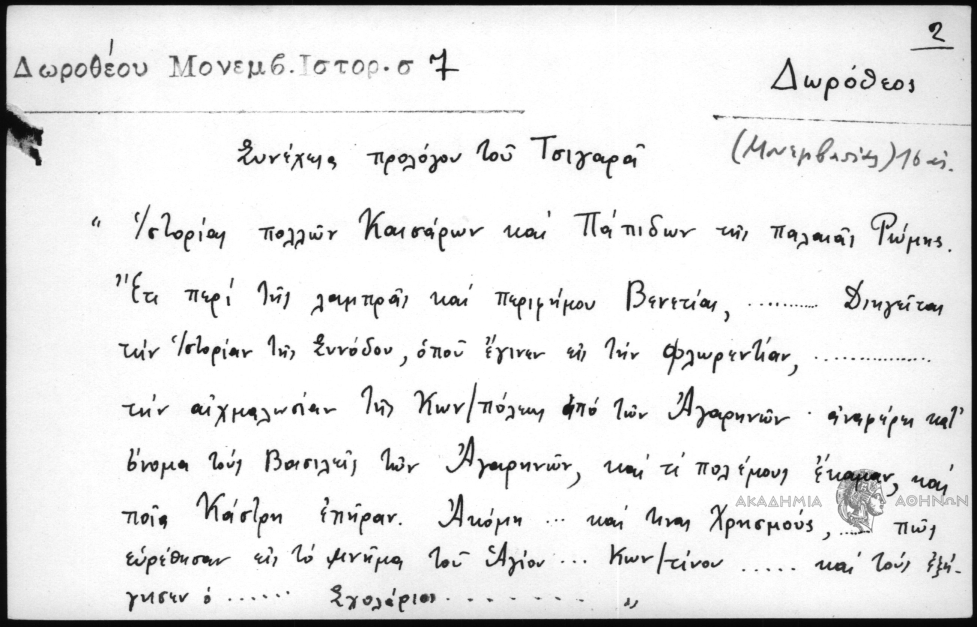 2
Δωροθέου Μονεμβ. Ιστορ. σ 7
Δωρόθεος
Συνέχεια προλόγου τοῦ Τσιγαρᾶ
(Μονεμβασίας) 16 αἰ.
" Ἱστορίας πολλῶν Καισάρων καὶ Πάπιδων τῆς παλαιᾶς Ρώμης.
Ἔτι περὶ τῆς λαμπρᾶς καὶ περιφήμου Βενετίας, .......... Διηγεῖται
τὴν Ἱστορίαν τῆς Συνόδου, ὁποῦ ἔγινεν εἰς τὴν Φλωρεντίαν, ................
τὴν αἰχμαλωσίαν τῆς Κων/πόλεως ἀπό τῶν Ἀγαρηνῶν · ἀναφέρει κατ'
ὄνομα τούς Βασιλεῖς τῶν Ἀγαρηνῶν, καὶ τί πολέμους ἔκαμαν, καὶ
ποῖα Κάστρη ἐπῆραν. Ἀκόμη ... καὶ τινας Χρησμούς, ...... πῶς
ΑΚΑΔΗΜΙΑ ΑΘΗΝΩΝ
εὑρέθησαν εἰς τό μνῆμα τοῦ Ἁγίου ... Κων/τίνου ..... καὶ τούς ἐξή-
γησεν ὁ ...... Σχολάριος ........ "